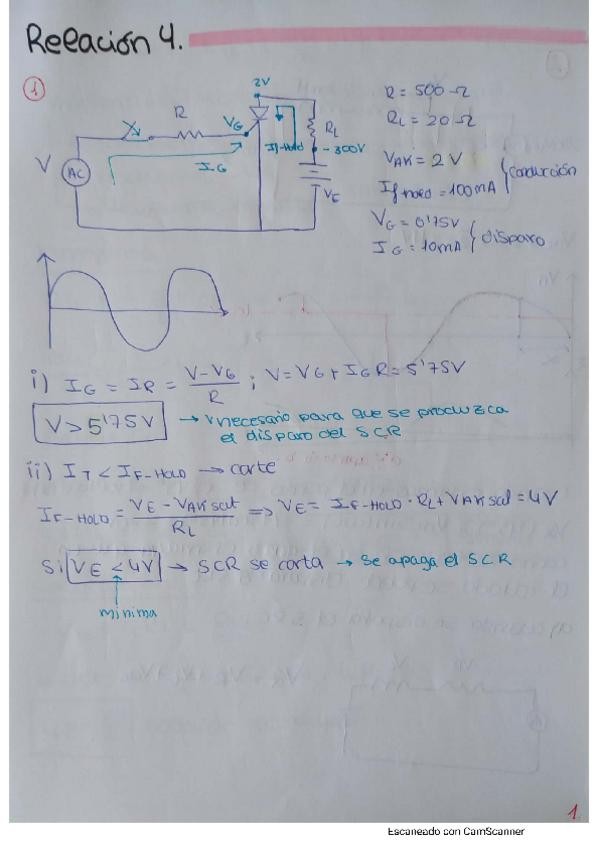 Relación 4.
1
2V
R
VG
RL
If-Hold
- 300V
V
AC
IG
VE
R = 500 Ω
RL = 20 Ω
VAK = 2 V
If hold = 100mA } conducción
VG = 0'75V
IG = 10mA } disparo
i) IG = IR = (V - VG)/R ; V = VG + IG R = 5'75V
V > 5'75V → V necesario para que se produzca
el disparo del SCR
ii) IT < IF-HOLD → corte
IF-HOLD = (VE - VAK sat)/RL ⇒ VE = IF-HOLD · RL + VAK sat = 4V
Si VE < 4V → SCR se corta → se apaga el SCR
minima
1
Escaneado con CamScanner